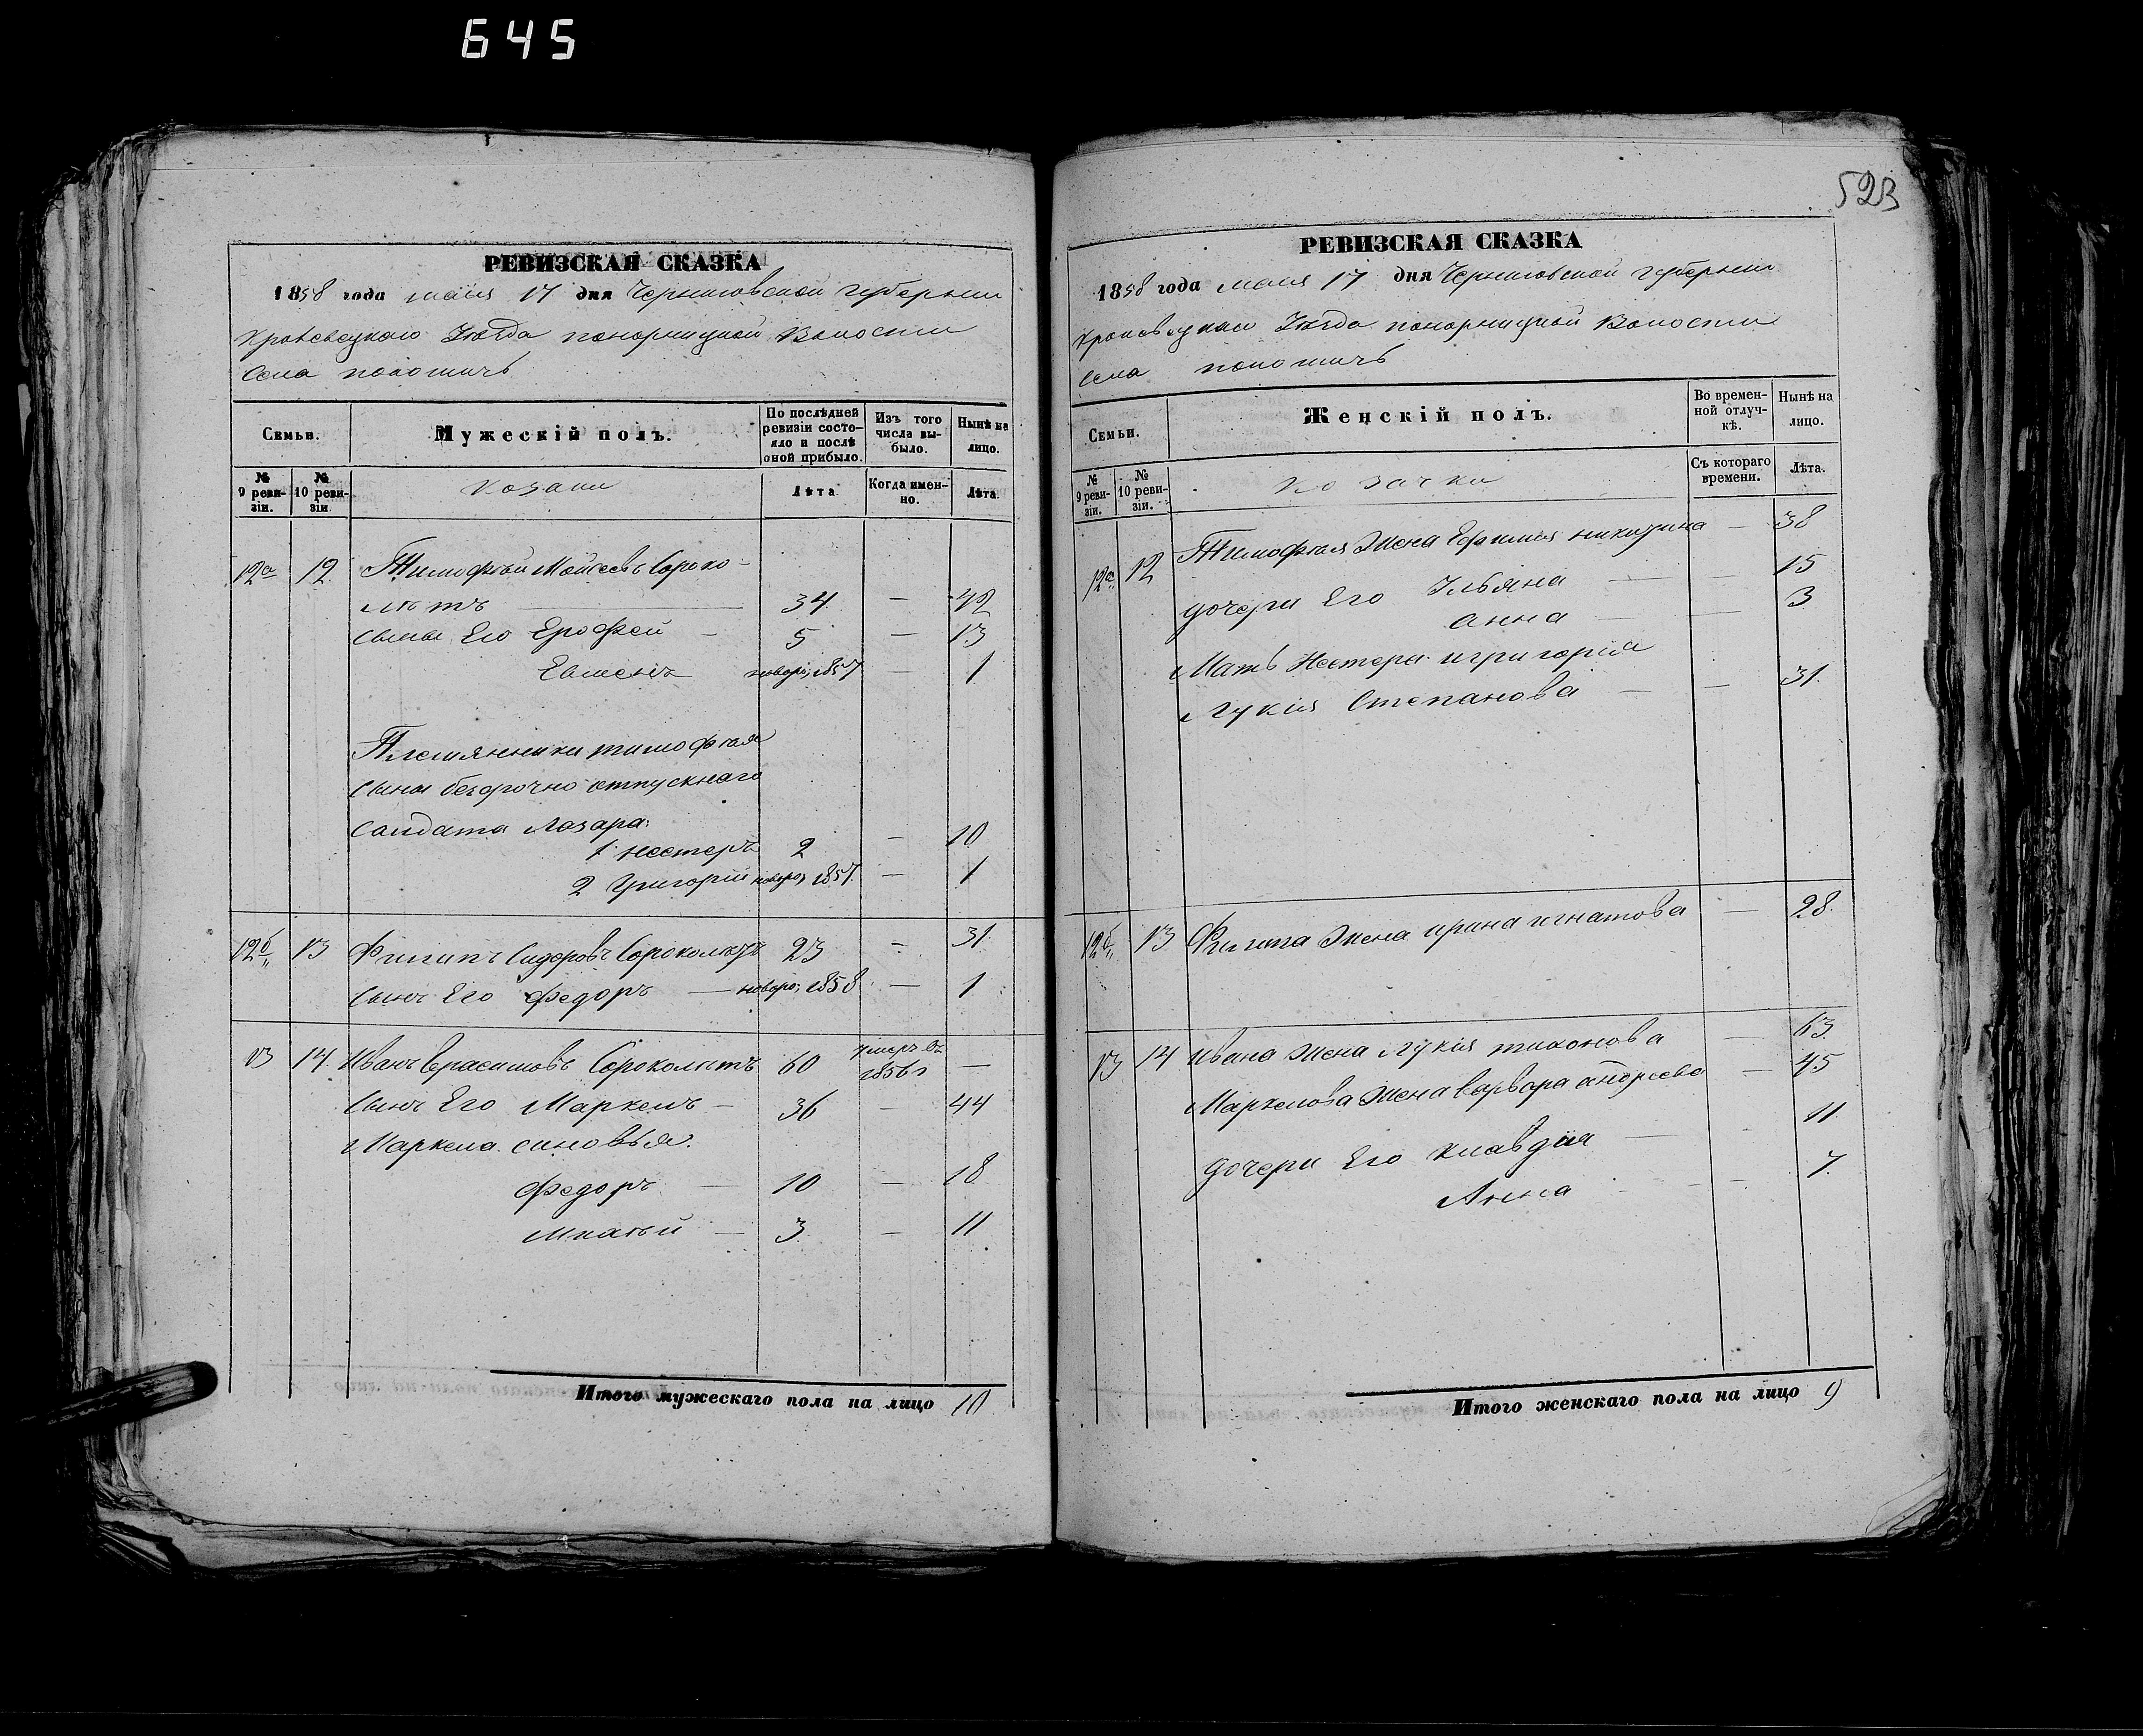 645
523
РЕВИЗСКАЯ СКАЗКА
1858 года маія 17 дня Черниговской губерніи
Кролевецкаго Уѣзда понорницкой Волости
Села
Семьи.
Мужескій полъ.
По послѣдней ревизіи состояло и послѣ оной прибыло.
Изъ того числа выбыло.
Нынѣ на лицо.
№ 9 ревизіи.
№ 10 ревизіи.
Козаки
Лѣта.
Когда именно.
Лѣта.
12а 12. Тимофѣй Мойсеевъ Сороко-
лѣтъ 34 — 42
Сыны Его Ерофей — 5 — 13
Евменъ новоро; 1857 — 1
Племянники тимофѣя
Сыны безсрочно отпускнаго
Солдата Лазара:
1 нестеръ 2 — 10
2 Григорій новоро; 1857. — 1
12б 13 Филипъ Сидоровъ Сороколѣтъ 23 — 31.
Сынъ Его Федоръ — новоро; 1858 — 1
13 14. Иванъ Герасимовъ Сороколѣтъ 60 умеръ въ 1856 г —
Сынъ Его Маркелъ — 36 — 44
Маркела сыновья.
Федоръ — 10 — 18
— 3 — 11
Итого мужескаго пола на лицо 10
РЕВИЗСКАЯ СКАЗКА
1858 года маія 17 дня Черниговской губерніи
Кролевецкаго Уѣзда понорницкой Волости
Села
Семьи.
Женскій полъ.
Во временной отлучкѣ.
Нынѣ на лицо.
№ 9 ревизіи.
№ 10 ревизіи.
козачки
Съ котораго времени.
Лѣта.
12а 12 Тимофѣя Жена Ефимія никитина — 38
дочери Его Ульяна — — 15
анна — — 3
Мать Нестера и григорія
Лукія Степанова — — 31.
12б 13 Филипа Жена ирина игнатова — 28.
13 14 ивана Жена Лукія тихонова — 63.
Маркелова Жена варвара андреева — 45
дочери Его клавдія — 11.
Анна — 7.
Итого женскаго пола на лицо 9